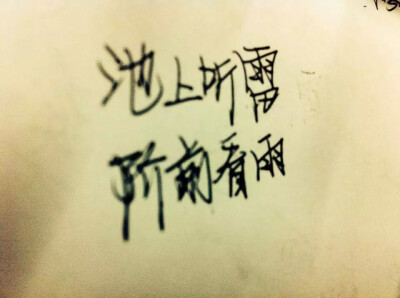 池上听雷
阶前看雨